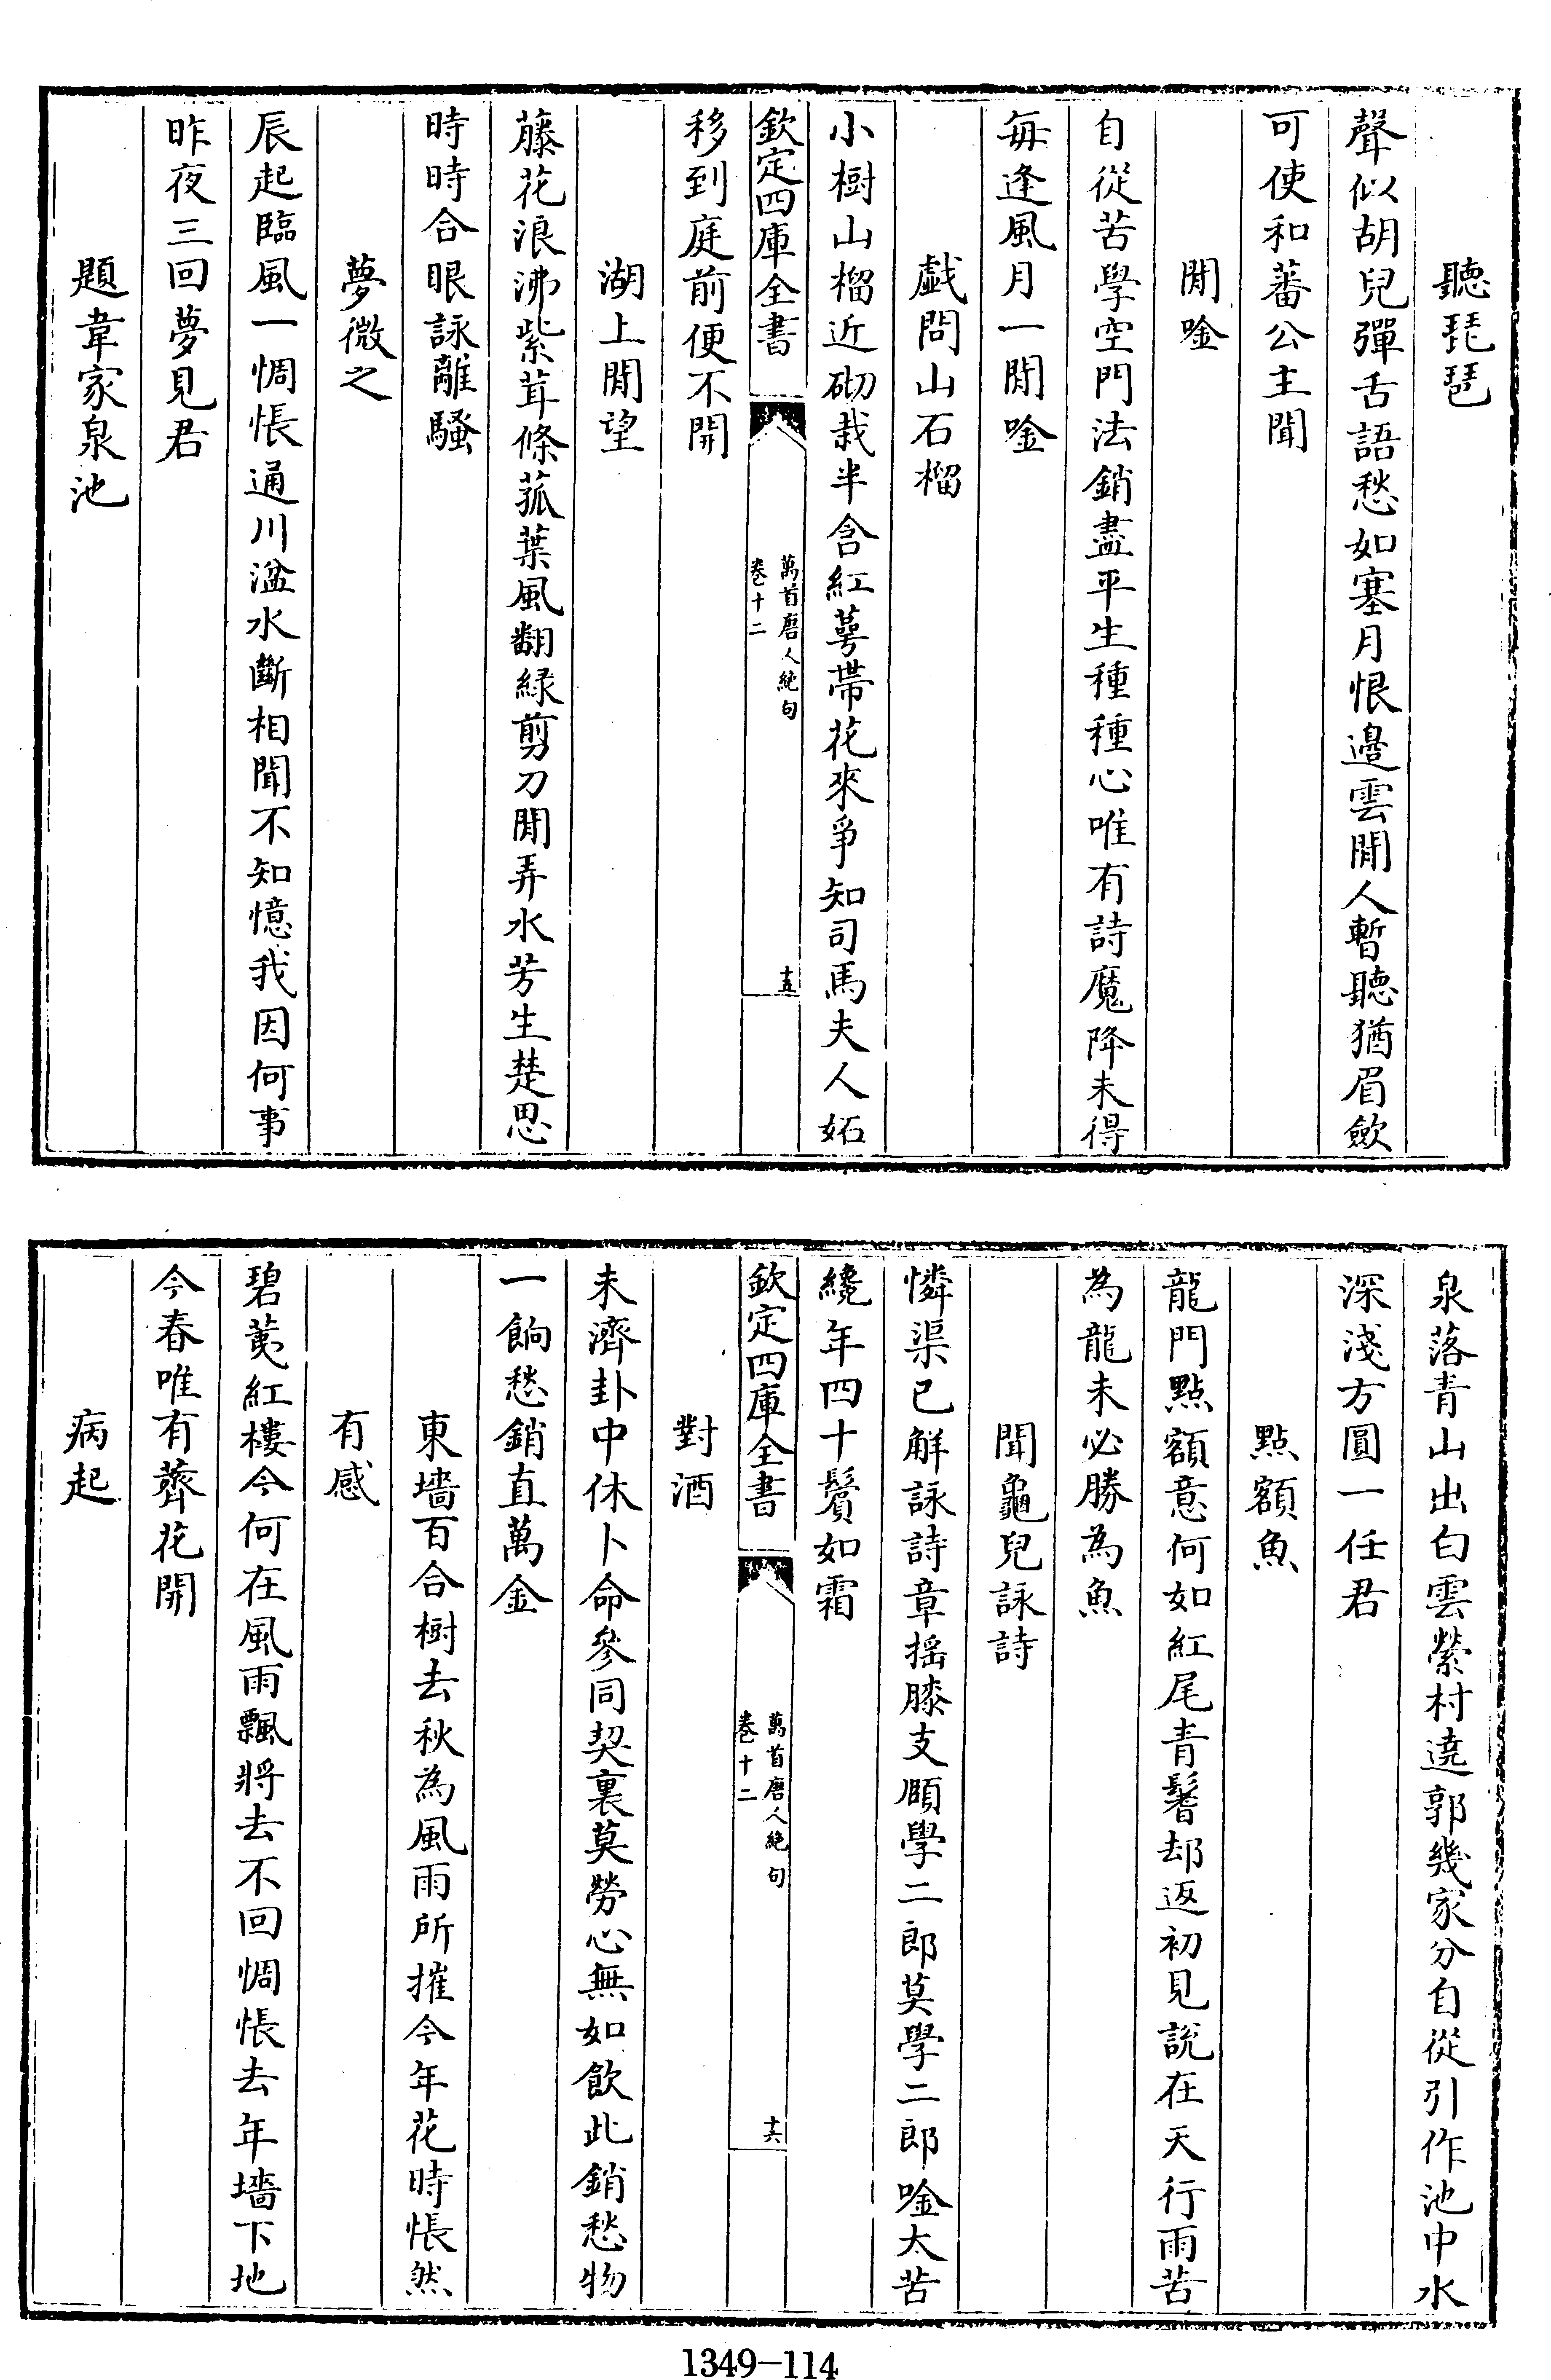 聽琵琶
聲似胡兒彈舌語愁如塞月恨邊雲閒人暫聽猶眉歛
可使和蕃公主聞
閒唫
自從苦學空門法銷盡平生種種心唯有詩魔降未得
每逢風月一閒唫
戲問山石榴
小樹山榴近砌栽半含紅萼帶花來爭知司馬夫人妬
欽定四庫全書
萬首唐人絶句
卷十二
十五
移到庭前便不開
湖上閒望
藤花浪沸紫茸條菰葉風翻緑剪刀閒弄水芳生楚思
時時合眼詠離騷
夢微之
辰起臨風一惆悵通川湓水斷相聞不知憶我因何事
昨夜三回夢見君
題韋家泉池
泉落青山出白雲縈村遶郭幾家分自從引作池中水
深淺方圓一任君
點額魚
龍門點額意何如紅尾青鬐却返初見說在天行雨苦
為龍未必勝為魚
聞龜兒詠詩
憐渠已解詠詩章摇膝支頤學二郎莫學二郎唫太苦
纔年四十鬢如霜
欽定四庫全書
萬首唐人絶句
卷十二
十六
對酒
未濟卦中休卜命參同契裏莫勞心無如飲此銷愁物
一餉愁銷直萬金
東墻百合樹去秋為風雨所摧今年花時悵然
有感
碧荑紅縷今何在風雨飄將去不回惆悵去年墻下地
今春唯有薺花開
病起
1349-114